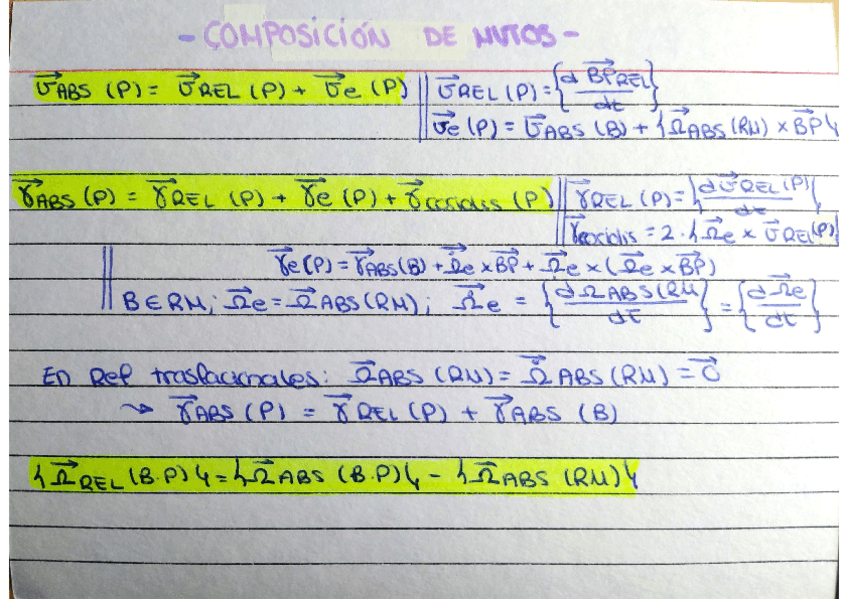 - COMPOSICIÓN DE MVTOS -
v⃗ABS (P) = v⃗REL (P) + v⃗e (P) || v⃗REL (P) = {d BP⃗REL / dt}
v⃗e (P) = v⃗ABS (B) + {Ω⃗ABS (RM) × BP⃗}
γ⃗ABS (P) = γ⃗REL (P) + γ⃗e (P) + γ⃗coriolis (P) || γ⃗REL (P) = {d v⃗REL (P) / dt}
γ⃗coriolis = 2 · {Ω⃗e × v⃗REL (P)}
γ⃗e (P) = γ⃗ABS (B) + Ω⃗̇e × BP⃗ + Ω⃗e × (Ω⃗e × BP⃗)
B ∈ RM; Ω⃗e = Ω⃗ABS (RM); Ω⃗̇e = {d Ω⃗ABS (RM / dt} = {d Ω⃗e / dt}
En Ref traslacionales: Ω⃗ABS (RM) = Ω⃗̇ABS (RM) = 0⃗
⇝ γ⃗ABS (P) = γ⃗REL (P) + γ⃗ABS (B)
{Ω⃗REL (B.P)} = {Ω⃗ABS (B.P)} - {Ω⃗ABS (RM)}